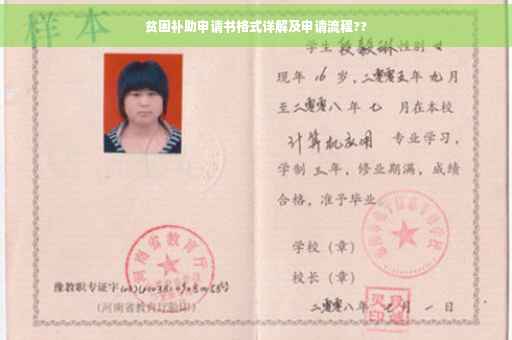 贫困补助申请书格式详解及申请流程??
样本
学生段毅琳性别女
现年16岁,二零零五年九月
至二零零八年七 月在本校
计算机应用 专业学习,
学制三年,修业期满,成绩
合格,准予毕业
学校(章)
校长(章)
二零零八年七月一日
河南省教育厅
豫教职专证字
(河南省教育厅验印)